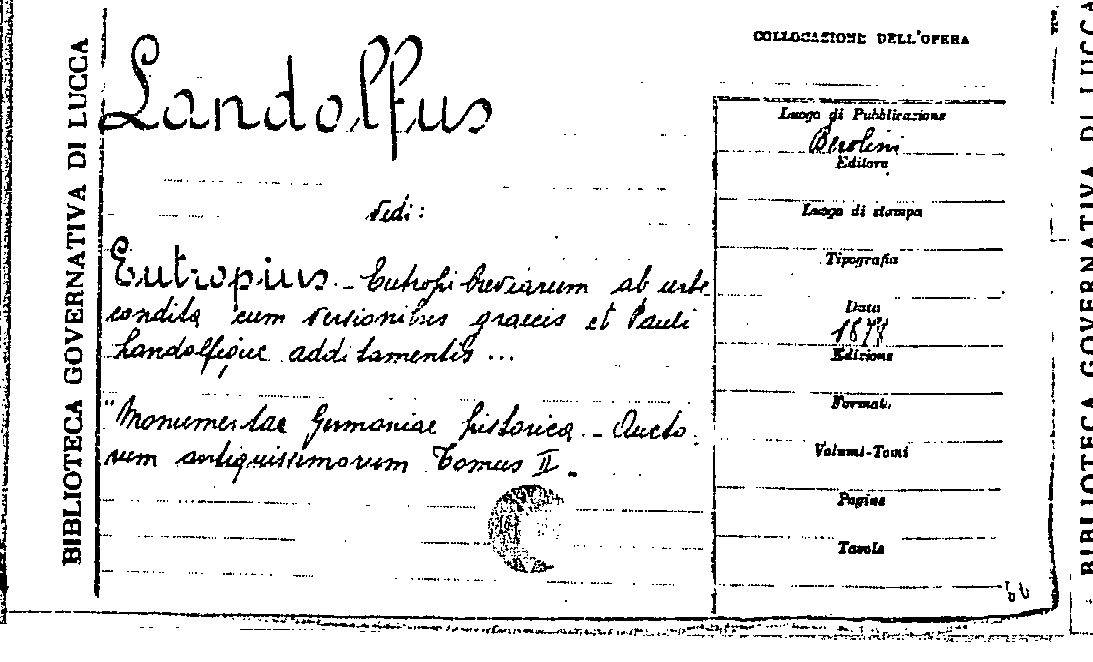 BIBLIOTECA GOVERNATIVA DI LUCCA
Landolfus
vedi:
Eutropius - Eutropi breviarum ab urbe
condita cum versionibus graecis et Pauli
Landolfique additamentis ...
"Monumentae Germaniae historica - Aucto
rum antiquissimorum Tomus II.
COLLOCAZIONE DELL'OPERA
Luogo di Pubblicazione
Berolini
Editore
Luogo di stampa
Tipografia
Data
1878
Edizione
Formato
Volumi-Tomi
Pagine
Tavole
BIBLIOTECA GOVERNATIVA DI LUCCA